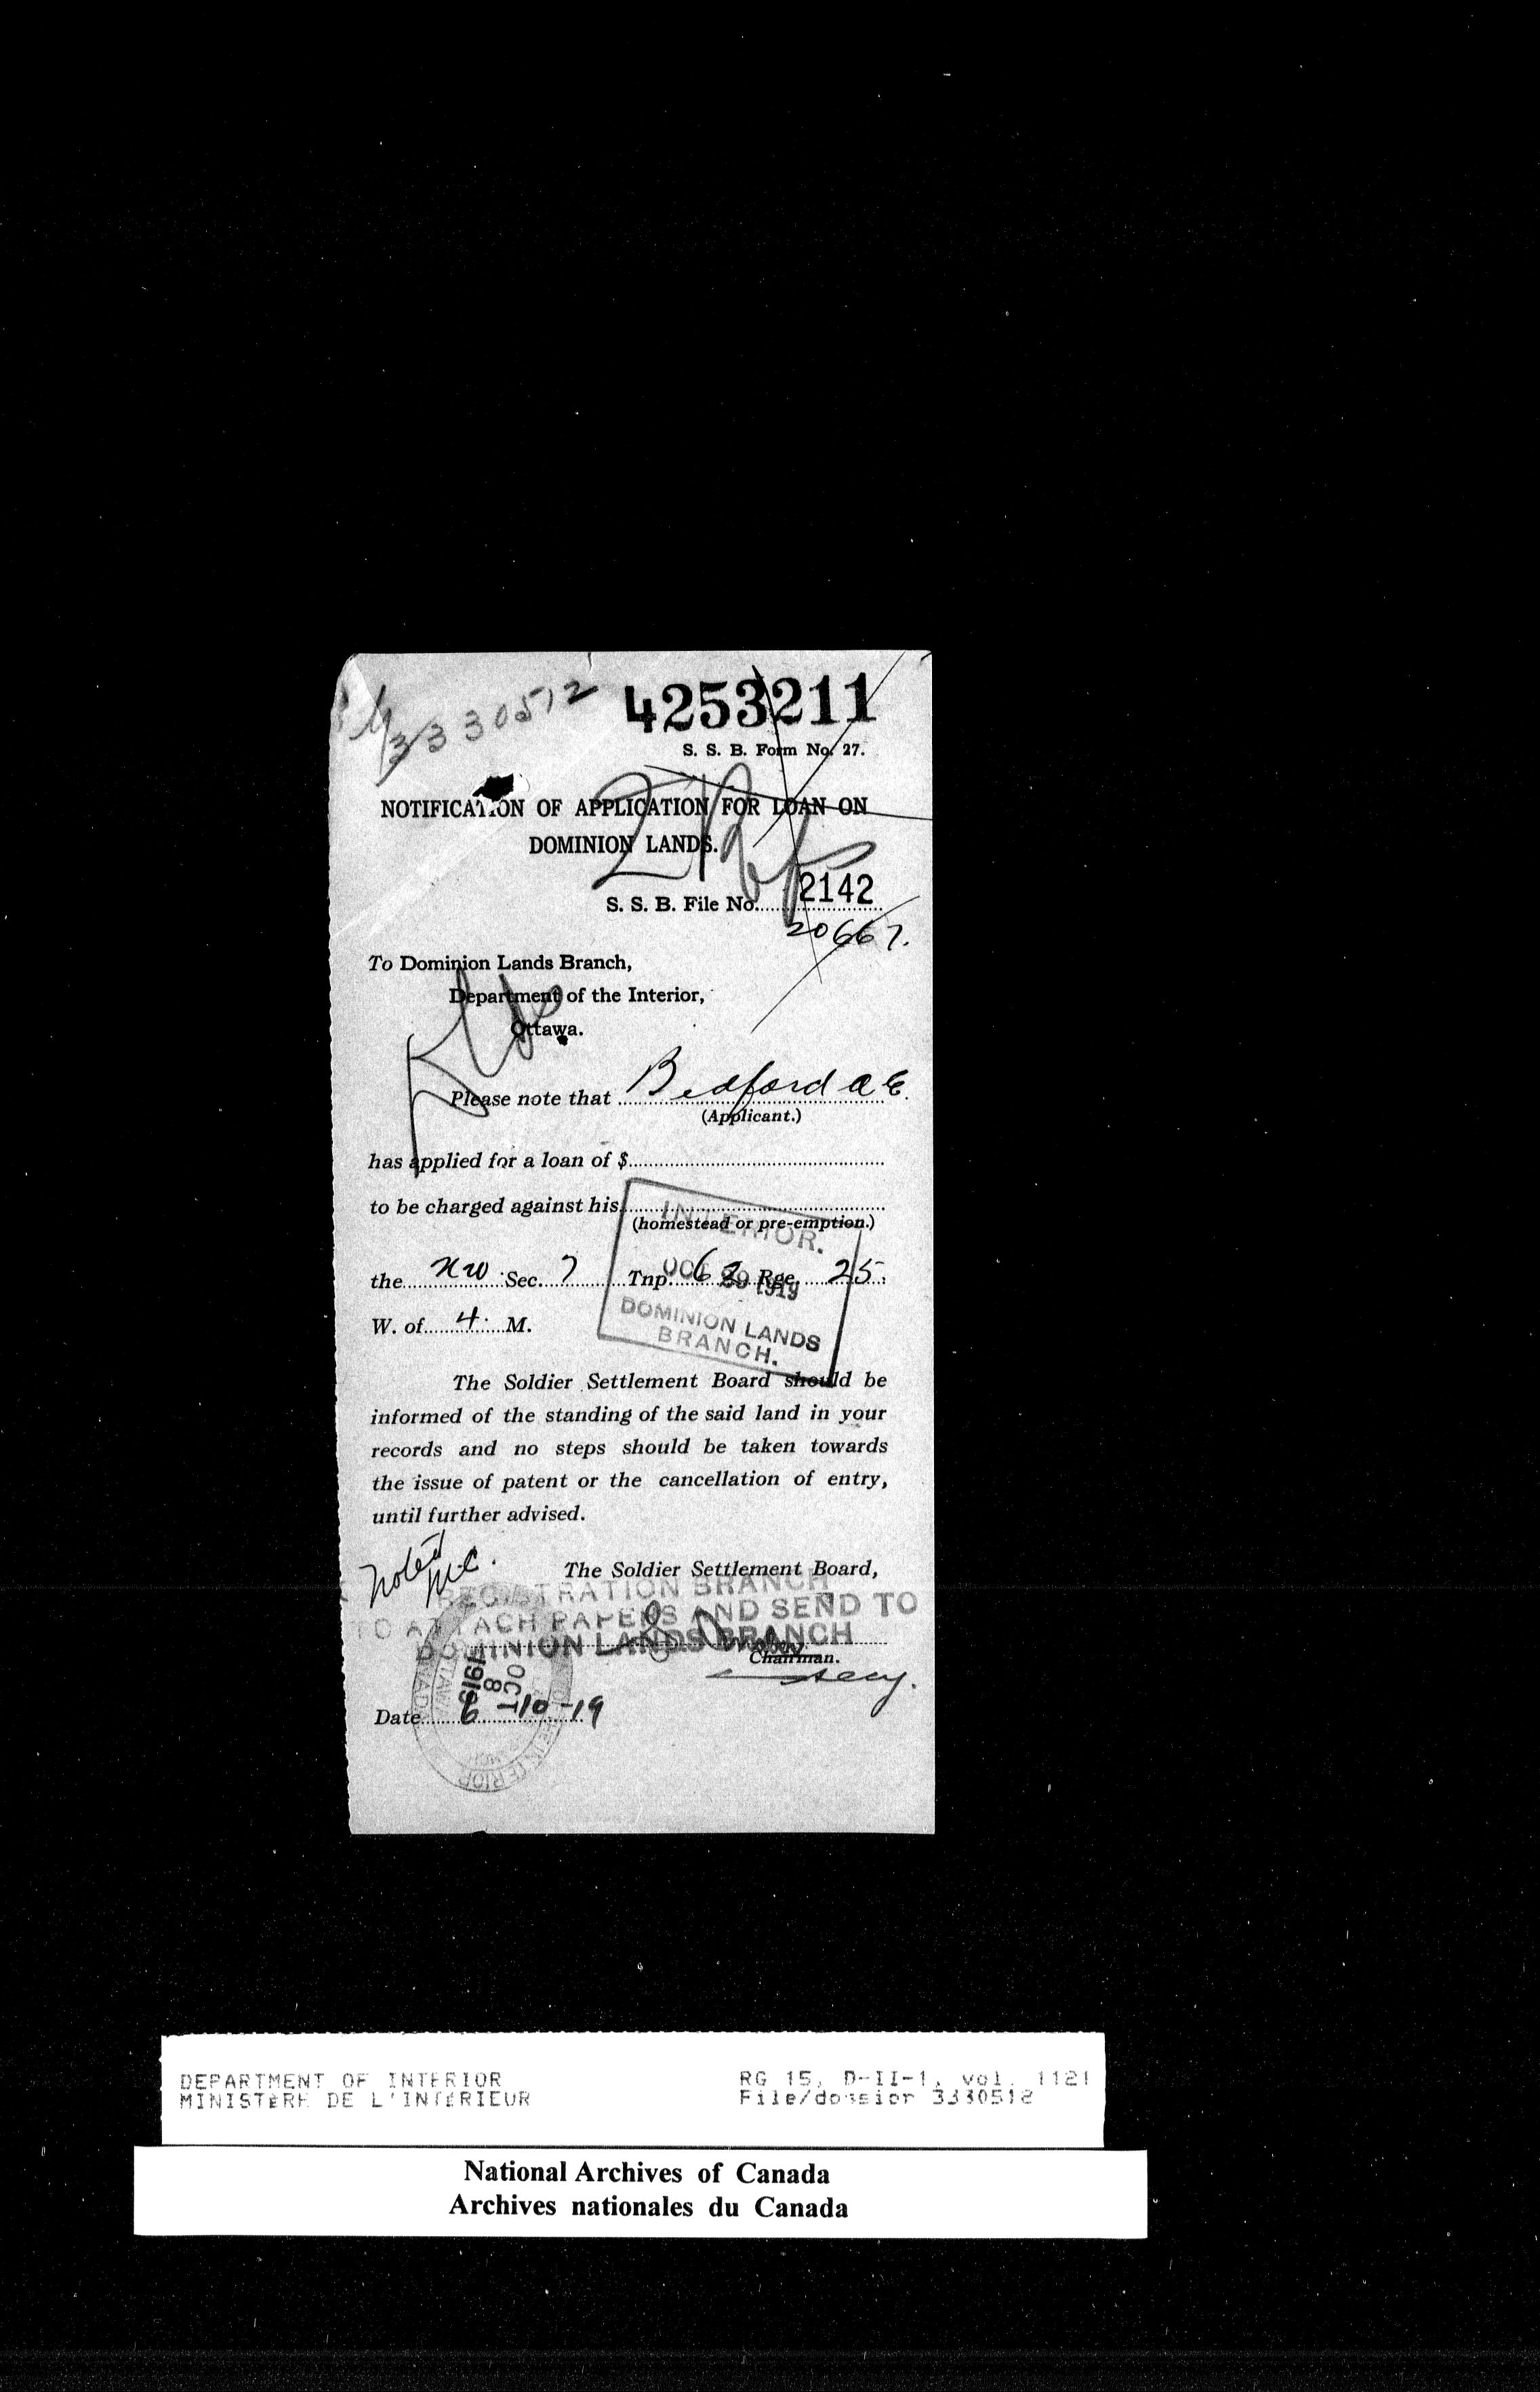 3330512
4253211
S. S. B. Form No. 27.
NOTIFICATION OF APPLICATION FOR LOAN ON
DOMINION LANDS.
S. S. B. File No. 2142
20667.
To Dominion Lands Branch,
Department of the Interior,
Ottawa.
Please note that Bedford A E.
(Applicant.)
has applied for a loan of $
to be charged against his
(homestead or pre-emption.)
INTERIOR.
OCT 29 1919
DOMINION LANDS
BRANCH.
the NW Sec. 7 Tnp. 62 Rge. 25.
W. of 4 M.
The Soldier Settlement Board should be
informed of the standing of the said land in your
records and no steps should be taken towards
the issue of patent or the cancellation of entry,
until further advised.
Noted
The Soldier Settlement Board,
REGISTRATION BRANCH
TO ATTACH PAPERS AND SEND TO
DOMINION LANDS BRANCH
Chairman.
Secy.
OCT
8
1919
Date 6-10-19
DEPARTMENT OF INTERIOR
MINISTÈRE DE L'INTÉRIEUR
RG 15, D-II-1, vol. 1121
File/dossier 3330512
National Archives of Canada
Archives nationales du Canada